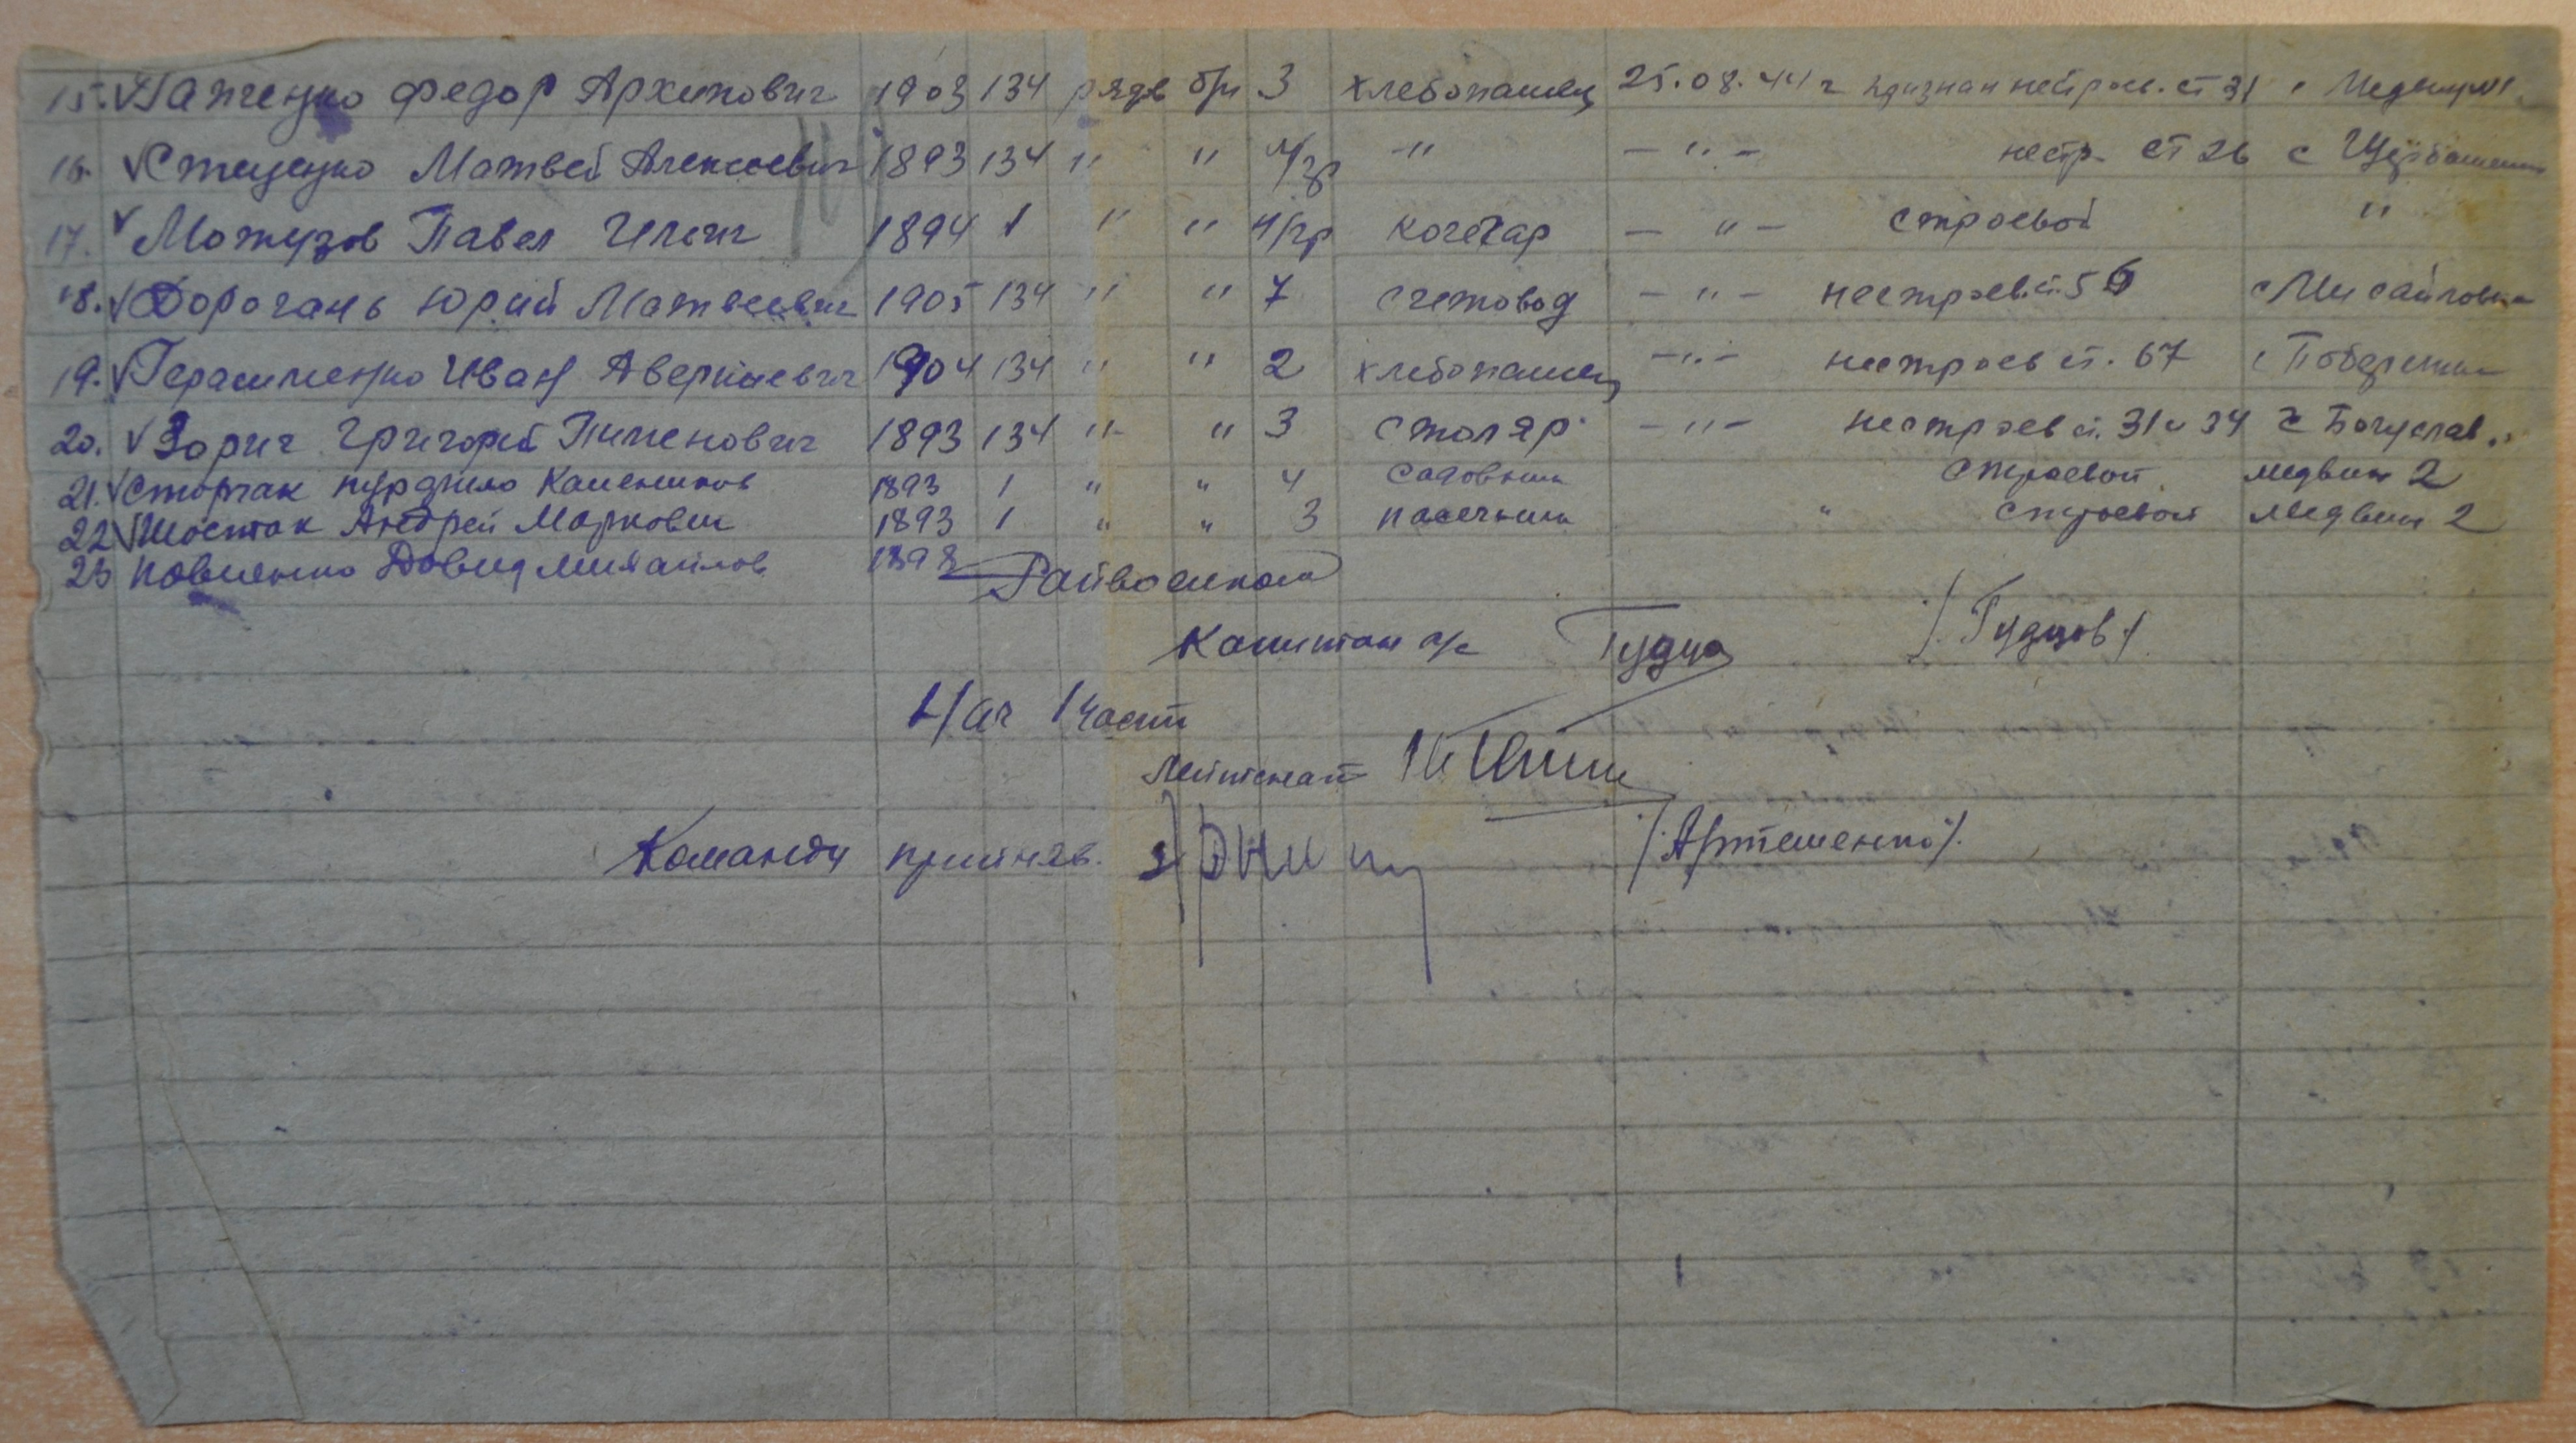 15. Панченко Федор Архипович 1903 134 рядв б/п 3 хлебопашец 25.08.44 г признан нестроев. ст 31 с
16. Стеценко Матвей Алексеевич 1893 134 " " н/гр " — " — нестр. ст 26 с
17. Можузов Павел Ильич 1894 1 " " н/гр кочегар — " — строевой "
18. Дорогань Юрий Матвеевич 1905 134 " " 7 счетовод — " — нестроев. ст. 56 с Мисайловка
19. Герасименко Иван Аверкиевич 1904 134 " " 2 хлебопашец — " — нестроев ст. 67 с Побережка
20. Зорич Григорий Пименович 1893 134 " " 3 столяр — " — нестроев ст. 31 и 34 Богуслав
21. Сторчак 1893 1 " " 4 садовник строевой медвин 2
22 Шостак Андрей Маркович 1893 1 " " 3 пасечник " строевой медвин 2
23 Павленко Давид михайлов 1898
Райвоенком
Капитан а/с /Гудзов/
Нач 1 части
Лейтенант
/Артеменко/
Команду приняв.